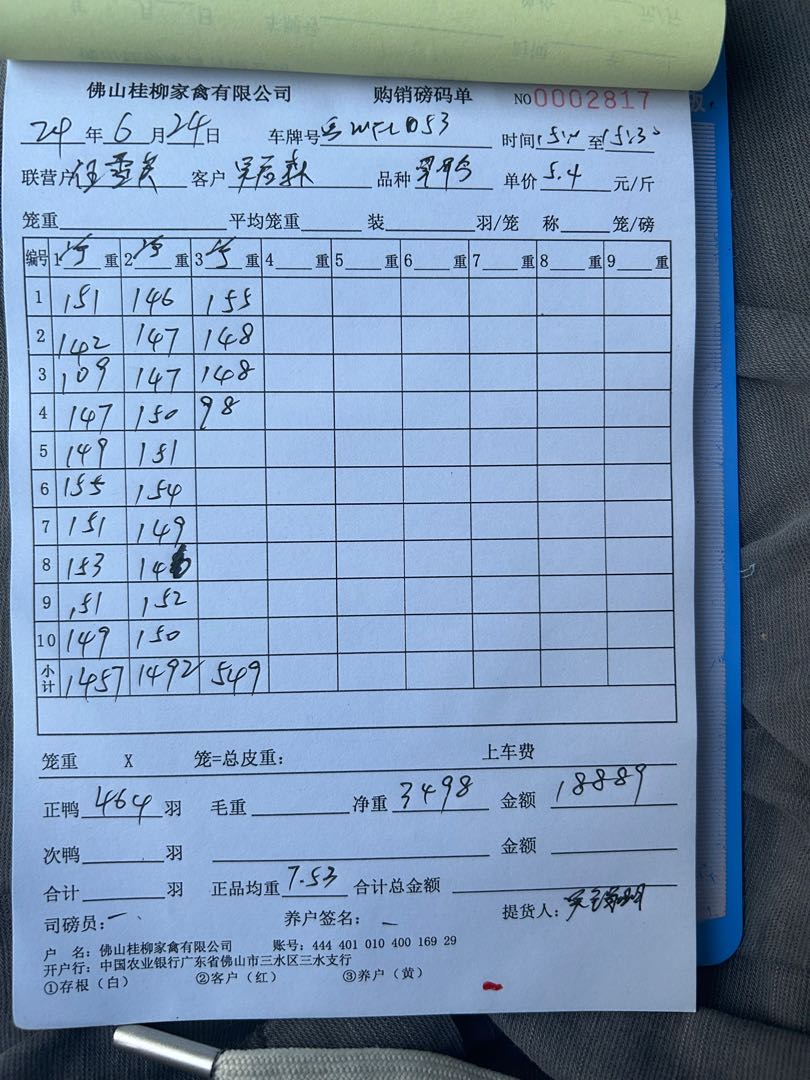 佛山桂柳家禽有限公司 购销磅码单 NO 0002817
24年6月24日 车牌号 053 时间 至 15:30
联营户 客户 品种 单价 5.4 元/斤
笼重 平均笼重 装 羽/笼 称 笼/磅
编号 1 重 2 重 3 重 4 重 5 重 6 重 7 重 8 重 9 重
1 151 146 155
2 142 147 148
3 109 147 148
4 147 150 98
5 149 151
6 155 154
7 151 149
8 153
9 151 152
10 149 150
小计 1457 1492 549
笼重 X 笼=总皮重: 上车费
正鸭 464 羽 毛重 净重 3498 金额 18889
次鸭 羽 金额
合计 羽 正品均重 7.53 合计总金额
司磅员: 养户签名: 提货人:
户 名: 佛山桂柳家禽有限公司 账号: 444 401 010 400 169 29
开户行: 中国农业银行广东省佛山市三水区三水支行
①存根(白) ②客户(红) ③养户(黄)